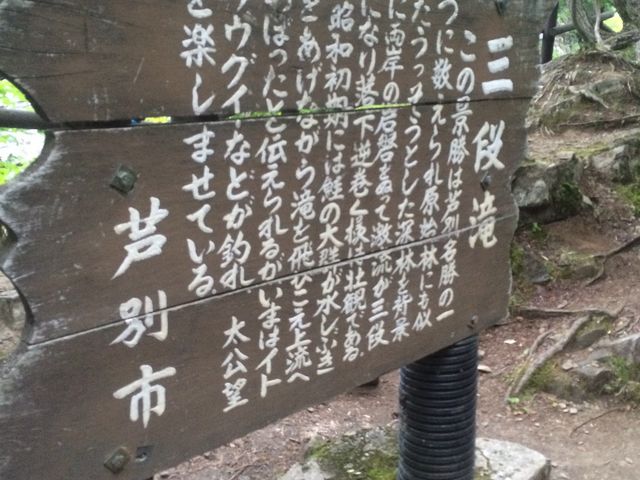 三段滝
この景勝は芦別名勝の一
つに数えられ原始林にも似
たうっそうとした森林を背景
に両岸の岩盤あって激流が三段
になり落下逆巻く様は壮観である
昭和初期には鮭の大群が水しぶき
をあげながら滝を飛びこえ上流へ
のぼったと伝えられるがいまはイト
ウグイなどが釣れ 太公望
を楽しませている
芦別市